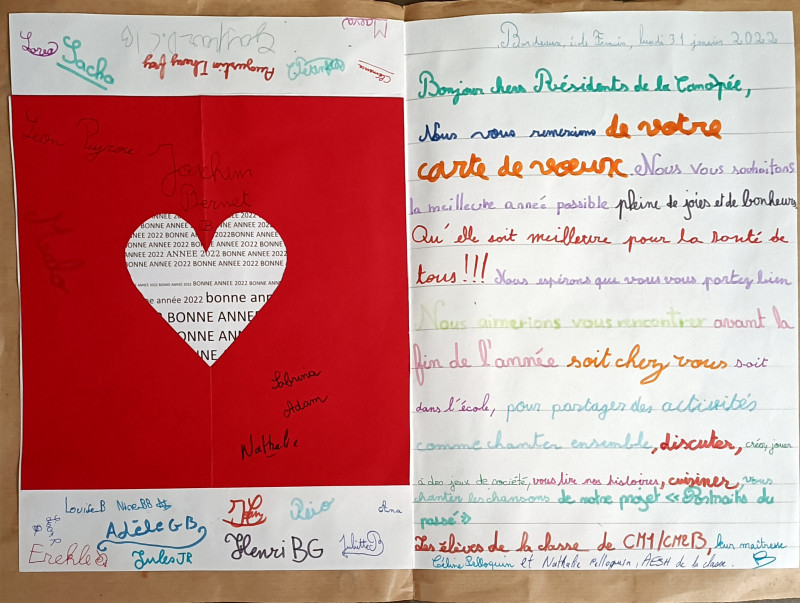 Maeva
Lara
Sacha
Clémence
Leon Peyrone
Joachim
Bernet
Malo
NNE 2022 BONNE ANN
ANNEE 2022 BONNE ANNEE 2022BONNE ANNEE
BONNE ANNEE 2022 BONNE ANNEE 2022 BONNE
ANNEE 2022 ANNEE 2022 BONNE ANNEE
ONNE ANNEE 2022 BONNE ANNEE 2022 BONNE
bonne année 2022 bonne ann
2 BONNE ANNEE
ONNE ANN
INE
Sabrina
Adam
Nathalie
Louise B Nine BB
Adèle G B
Réio
Ana
Erekle
Jules JR
Henri BG
Juliette B
Bordeaux, école Ferrin, lundi 31 janvier 2022
Bonjour chers Présidents de la Canopée,
Nous vous remercions de votre
carte de vœux. Nous vous souhaitons
la meilleure année possible pleine de joies et de bonheurs
Qu'elle soit meilleure pour la santé de
tous!!! Nous espérons que vous vous portez bien
Nous aimerions vous rencontrer avant la
fin de l'année soit chez vous soit
dans l'école, pour partager des activités
comme chanter ensemble, discuter, créer, jouer
à des jeux de société, vous lire nos histoires, cuisiner, vous
chanter les chansons de notre projet « Portraits du
passé »
Les élèves de la classe de CM1/CM2B, leur maîtresse
Céline Pelloquin et Nathalie Pelloquin, AESH de la classe.